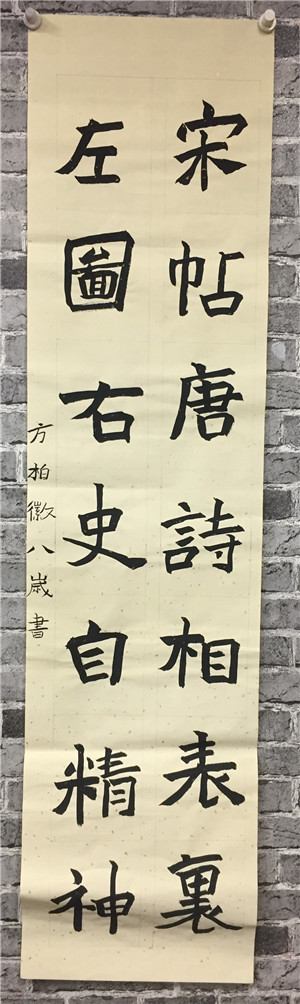 宋帖唐詩相表裏
左圖右史自精神
方柏徽八歲書